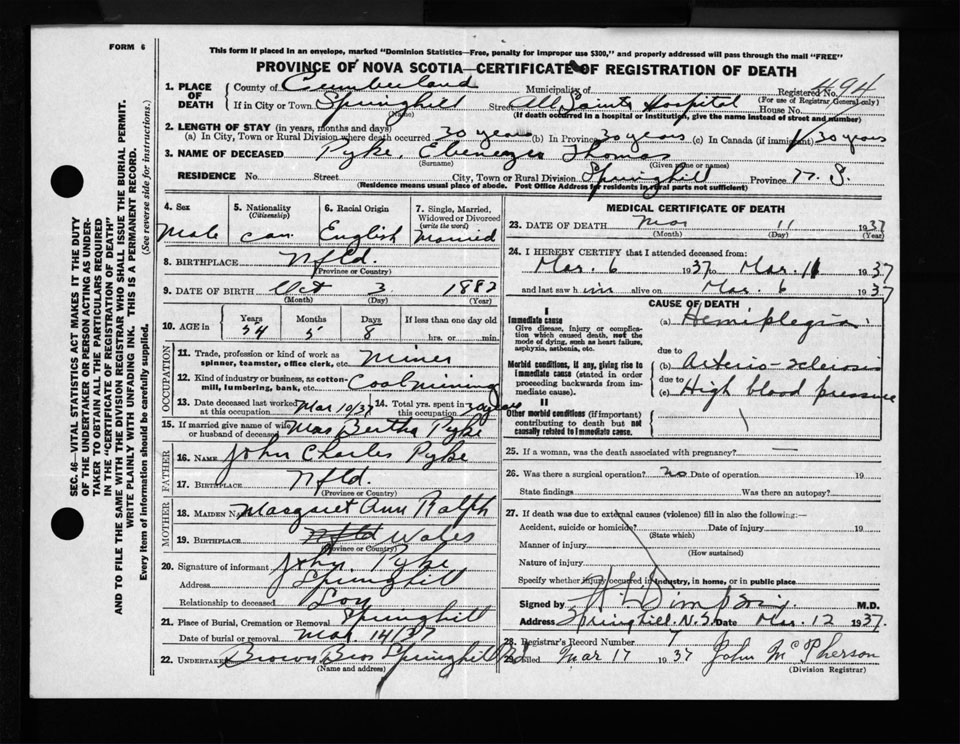 FORM 6
This form if placed in an envelope, marked "Dominion Statistics—Free, penalty for improper use $300," and properly addressed will pass through the mail "FREE"
PROVINCE OF NOVA SCOTIA—CERTIFICATE OF REGISTRATION OF DEATH
SEC. 46—VITAL STATISTICS ACT MAKES IT THE DUTY
OF THE UNDERTAKER OR PERSON ACTING AS UNDER-
TAKER TO OBTAIN ALL THE PARTICULARS REQUIRED
IN THE "CERTIFICATE OF REGISTRATION OF DEATH"
AND TO FILE THE SAME WITH THE DIVISION REGISTRAR WHO SHALL ISSUE THE BURIAL PERMIT.
WRITE PLAINLY WITH UNFADING INK. THIS IS A PERMANENT RECORD.
Every item of information should be carefully supplied. (See reverse side for instructions.)
1. PLACE OF DEATH County of Cumberland Municipality of Registered No. 494
(For use of Registrar General only)
If in City or Town Springhill Street All Saints Hospital House No.
(Name) (If death occurred in a hospital or institution, give the name instead of street and number)
2. LENGTH OF STAY (in years, months and days)
(a) In City, Town or Rural Division where death occurred 30 years (b) In Province 30 years (c) In Canada (if immigrant) 30 years
3. NAME OF DECEASED Pyke, Ebenezer Thomas
(Surname) (Given name or names)
RESIDENCE No. Street City, Town or Rural Division Springhill Province N. S.
(Residence means usual place of abode. Post Office Address for residents in rural parts not sufficient)
4. Sex Male
5. Nationality (Citizenship) Can
6. Racial Origin English
7. Single, Married, Widowed or Divorced (write the word) Married
8. BIRTHPLACE Nfld.
(Province or Country)
9. DATE OF BIRTH Oct 3 1882
(Month) (Day) (Year)
10. AGE in Years 54 Months 5 Days 8 If less than one day old hrs. or min.
OCCUPATION
11. Trade, profession or kind of work as spinner, teamster, office clerk, etc. Miner
12. Kind of industry or business, as cotton-mill, lumbering, bank, etc. Coal mining
13. Date deceased last worked at this occupation Mar 10/37 14. Total yrs. spent in this occupation years
15. If married give name of wife or husband of deceased Mrs Bertha Pyke
FATHER
16. NAME John Charles Pyke
17. BIRTHPLACE Nfld.
(Province or Country)
MOTHER
18. MAIDEN NAME Margaret Ann Ralph
19. BIRTHPLACE Nfld Wales
(Province or Country)
20. Signature of informant John Pyke
Address Springhill
Relationship to deceased Son
21. Place of Burial, Cremation or Removal Springhill
Date of burial or removal Mar 14/37
22. UNDERTAKER Brown Bros Springhill
(Name and address)
MEDICAL CERTIFICATE OF DEATH
23. DATE OF DEATH Mar 11 1937
(Month) (Day) (Year)
24. I HEREBY CERTIFY that I attended deceased from:
Mar. 6 1937 to Mar. 11 1937
and last saw him alive on Mar. 6 1937
CAUSE OF DEATH
I
Immediate cause
Give disease, injury or complication which caused death, not the mode of dying, such as heart failure, asphyxia, asthenia, etc.
(a) Hemiplegia
due to
Morbid conditions, if any, giving rise to immediate cause (stated in order proceeding backwards from immediate cause).
(b) Arterio-sclerosis
due to
(c) High blood pressure
II
Other morbid conditions (if important) contributing to death but not causally related to immediate cause.
25. If a woman, was the death associated with pregnancy? —
26. Was there a surgical operation? no Date of operation 19
State findings Was there an autopsy?
27. If death was due to external causes (violence) fill in also the following:—
Accident, suicide or homicide? Date of injury 19
(State which)
Manner of injury
(How sustained)
Nature of injury
Specify whether injury occurred in industry, in home, or in public place
Signed by M.D.
Address Springhill, N.S. Date Mar. 12 1937.
28. Registrar's Record Number 7
29. Filed Mar 17 1937 John McPherson
(Division Registrar)